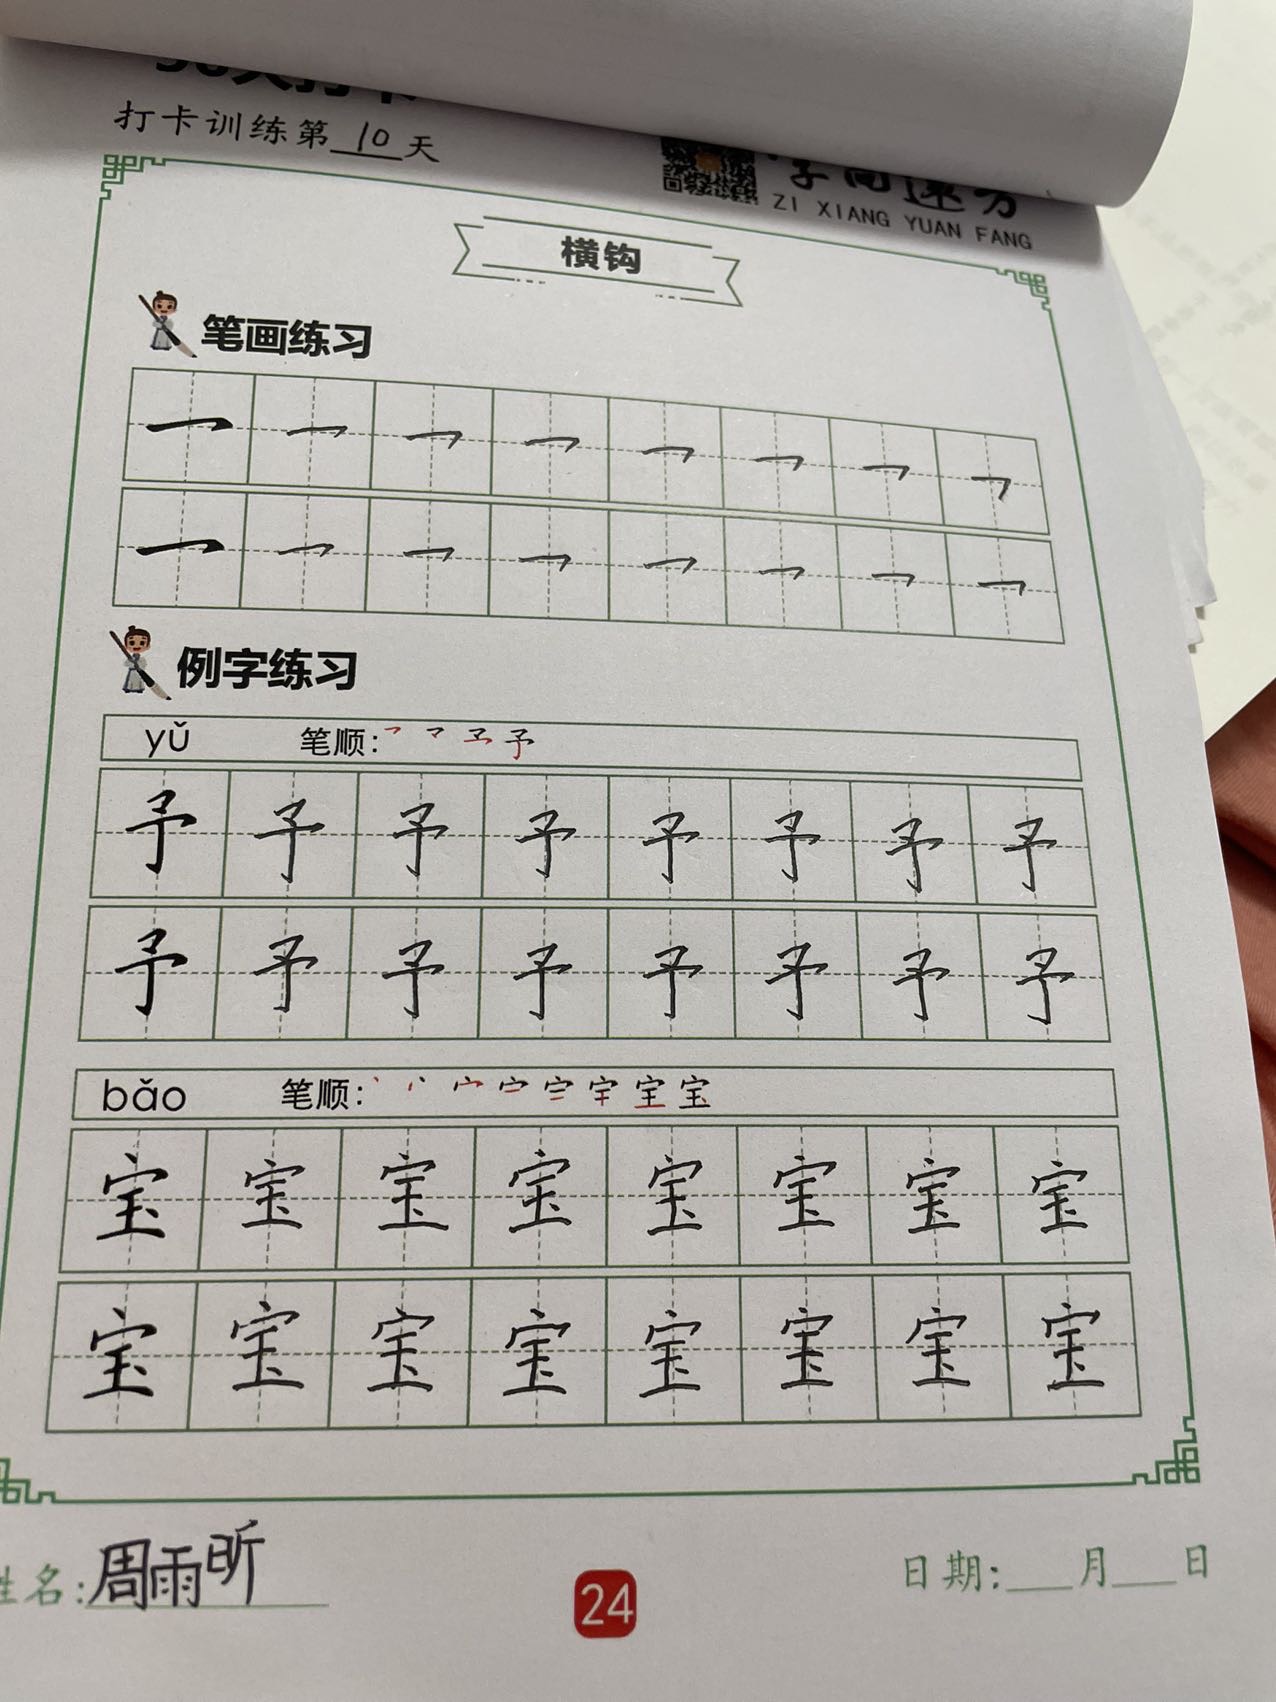 打卡训练第10天
ZI XIANG YUAN FANG
横钩
笔画练习
例字练习
yǔ 笔顺:
予 予 予 予 予 予 予 予
予 予 予 予 予 予 予 予
bǎo 笔顺:
宝 宝 宝 宝 宝 宝 宝 宝
宝 宝 宝 宝 宝 宝 宝 宝
姓名:周雨昕
24
日期:___月___日